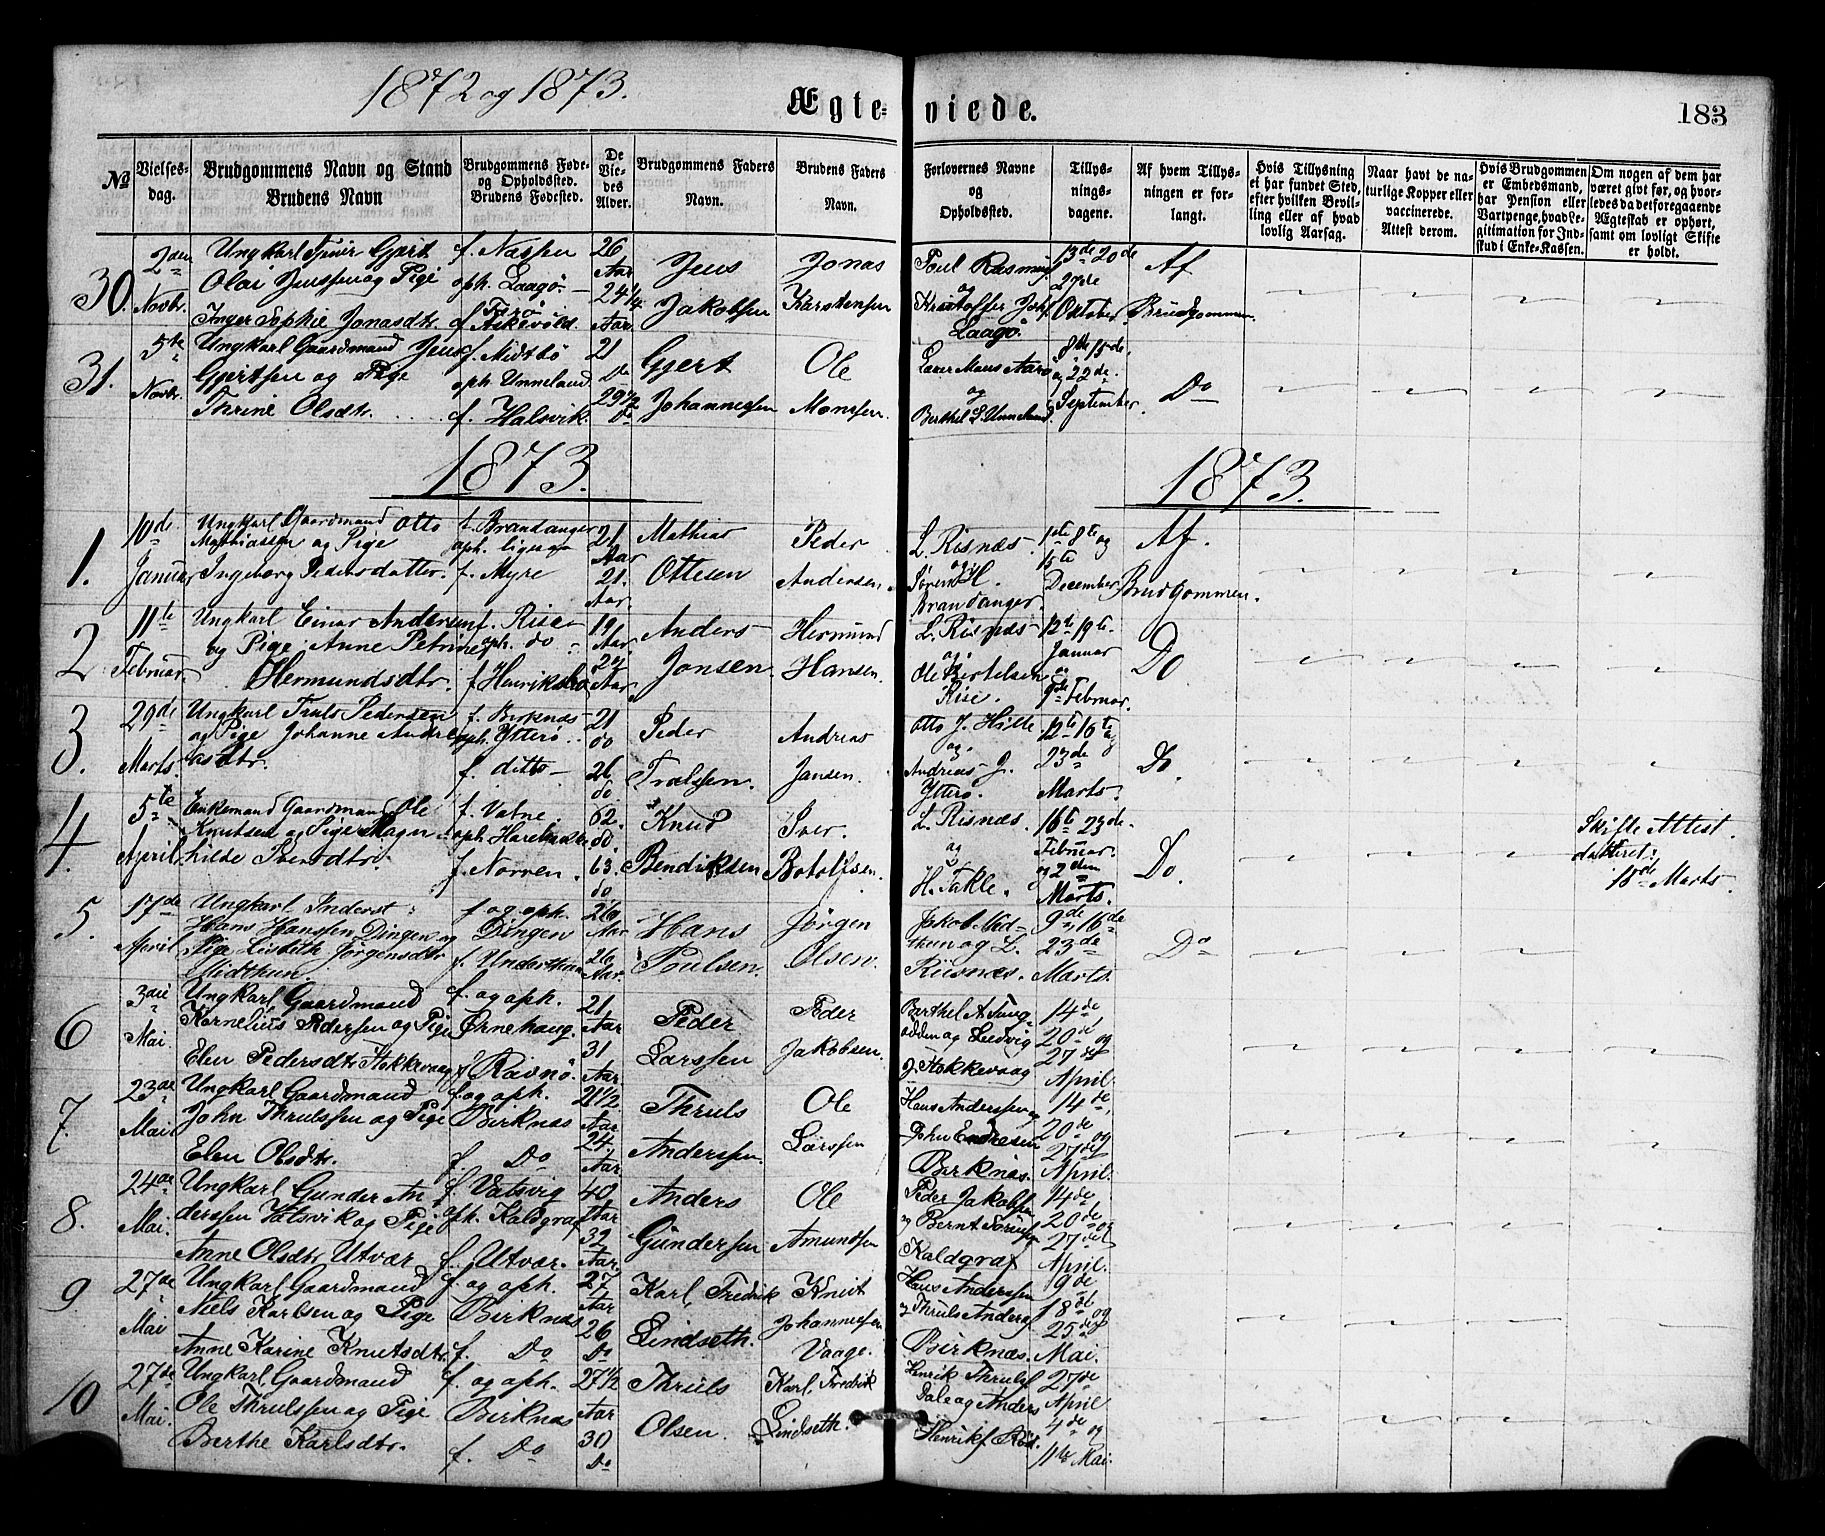 1872 og 1873.
Ægte- viede.
183
№
Vielses-dag.
Brudgommens Navn og Stand Brudens Navn
Brudgommens Føde- og Opholdssted. Brudens Fødested.
De Vie-des Alder.
Brudgommens Faders Navn.
Brudens Faders Navn.
Forlovernes Navne og Opholdssted.
Tillys-nings-dagene.
Af hvem Tillys-ningen er for-langt.
Hvis Tillysning ei har fundet Sted, efter hvilken Bevil-ling eller af hvad lovlig Aarsag.
Naar havt de na-turlige Kopper eller vaccinerede. Attest derom.
Hvis Brudgommen er Embedsmand, har Pension eller Vartpenge, hvad Le-gitimation for Ind-skud i Enke-Kassen.
Om nogen af dem har været givt før, og hvor-ledes da det foregaaende Ægteskab er ophørt, samt om lovligt Skifte er holdt.
30. 2den Novbr.
Ungkarl Gjert
Olai Jenssen og Pige
Inger Sophie Jonasdtr.
f. Nassen
oph. Laagø
f. Askevold
26 Aar
24 1/4 Aar
Jens Jakobsen
Jonas Karstensen
Poul Rasmus
og Kristoffer Joh.
Laagø.
13de 20de
27de
Oktober
Af Brudgommen
31. 5te Novbr.
Ungkarl Gaardmand Jens
Gjertsen og Pige
Thrine Olsdtr.
f. Midtbø
oph. Unneland
f. Halsvik.
21 Do
29 1/2 Do
Gjert Johannessen
Ole Monssen.
Mons Aarø
og
Berthel L. Unneland.
8de 15de
og 22de
September
Do
1873.
1873.
1. 10de Januar
Ungkarl Gaardmand Otto
Mathiassen og Pige
Ingeborg Pedersdatter.
f. Brandanger
oph. ligesaa
f. Myre
21 Aar
21. Aar.
Mathias Ottesen
Peder Andersen.
L. Risnæs.
og
Søren H.
Brandanger.
1ste 8de og
15de
December
Af. Brudgommen.
2 11te Februar.
Ungkarl Einar Andersen
og Pige Anne Petrine
Hermundsdtr.
f. Rise
oph. do
f. Henriksbø
19 Aar.
22 Aar
Anders Jonsen.
Hermund Hansen.
L. Risnæs
og
Ole Bertelsen
Rise.
12te 19te
Januar
og
9de Februar.
Do
3. 29de Marts.
Ungkarl Truls Pedersen
og Pige Johanne Andre
asdtr.
f. Birknæs
oph. Ytterø
f. ditto
21 do
26 do.
Peder Trælssen.
Andreas Jansen.
Otto J. Hille
og
Andreas J.
Ytterø.
12te 16te og
23de
Marts.
Do.
4. 5te April
Enkemand Gaardmand Ole
Knutsen og Pige Magn
hilde Iversdtr.
f. Vatne.
f. Norven.
62. do.
63. do
Knud Bendiksen
Iver. Botolfsen.
L. Risnæs.
og
H. Takle.
16de 23de
Februar
og 2den
Marts.
Do.
Skifte Attest.
datteret:
18de Marts.
5. 17de April
Ungkarl Inderst
Hans Hanssen Dingen og
Pige Lisbeth Jørgensdtr
Midthun
f og oph.
Dingen
f. Underthun
26 Aar
26 Aar.
Hans Poulsen.
Jørgen Olsen.
Jakob Mid
thun og L.
Riisnæs.
9de 16de
23de
Marts.
Do
6 3die Mai.
Ungkarl Gaardmand
Kornelius Pedersen og Pige
Elen Pedersdtr Stokkevaag
f. og oph.
Ørnehaug.
f. Ravnø.
21 Aar
31 Aar.
Peder Larssen
Peder Jakobsen.
Berthel A Tung
odden og Ludvig
J. Stokkevaag
14de
20de og
27de
April.
7. 23de Mai
Ungkarl Gaardmand
John Thrulssen og Pige
Elen Olsdtr.
f. og oph.
Birknæs
f. Do
21 1/2 Aar
24 Aar
Thruls Anderssen.
Ole Larssen
Hans Anderssen og
John Endresen
Birknæs.
14de,
20de og
27de
April.
8. 24de Mai.
Ungkarl Gunder An
derssen Vatsvik og Pige
Anne Olsdtr Utvær
f. Vatsvig
oph. Kaldgraf
f. Utvær.
40 Aar
32 Aar.
Anders Gunderssen
Ole Amundsen
Peder Jakobssen
og Bernt Sørens
Kaldgraf
14de
20de og
27de
April.
9. 27de Mai
Ungkarl Gaardmand
Niels Karlsen og Pige
Anne Karine Knutsdtr.
f. og oph.
Birknæs
f. Do
27 Aar
26 Do
Karl Fredrik Lindseth.
Knut Johannessen Vaage.
Hans Anderssen
og Thruls Anders
Birknæs.
9de
18de og
25de
Mai.
10 27de Mai.
Ungkarl Gaardmand
Ole Thrulssen og Pige
Berthe Karlsdtr.
f. og oph.
Birknæs
f. Do
27 1/2 Aar
30 Do
Thruls Olsen.
Karl Fredrik Lindseth.
Henrik Thruls
Dale og Anders
Henriks
27de
April
4de og
11te Mai.